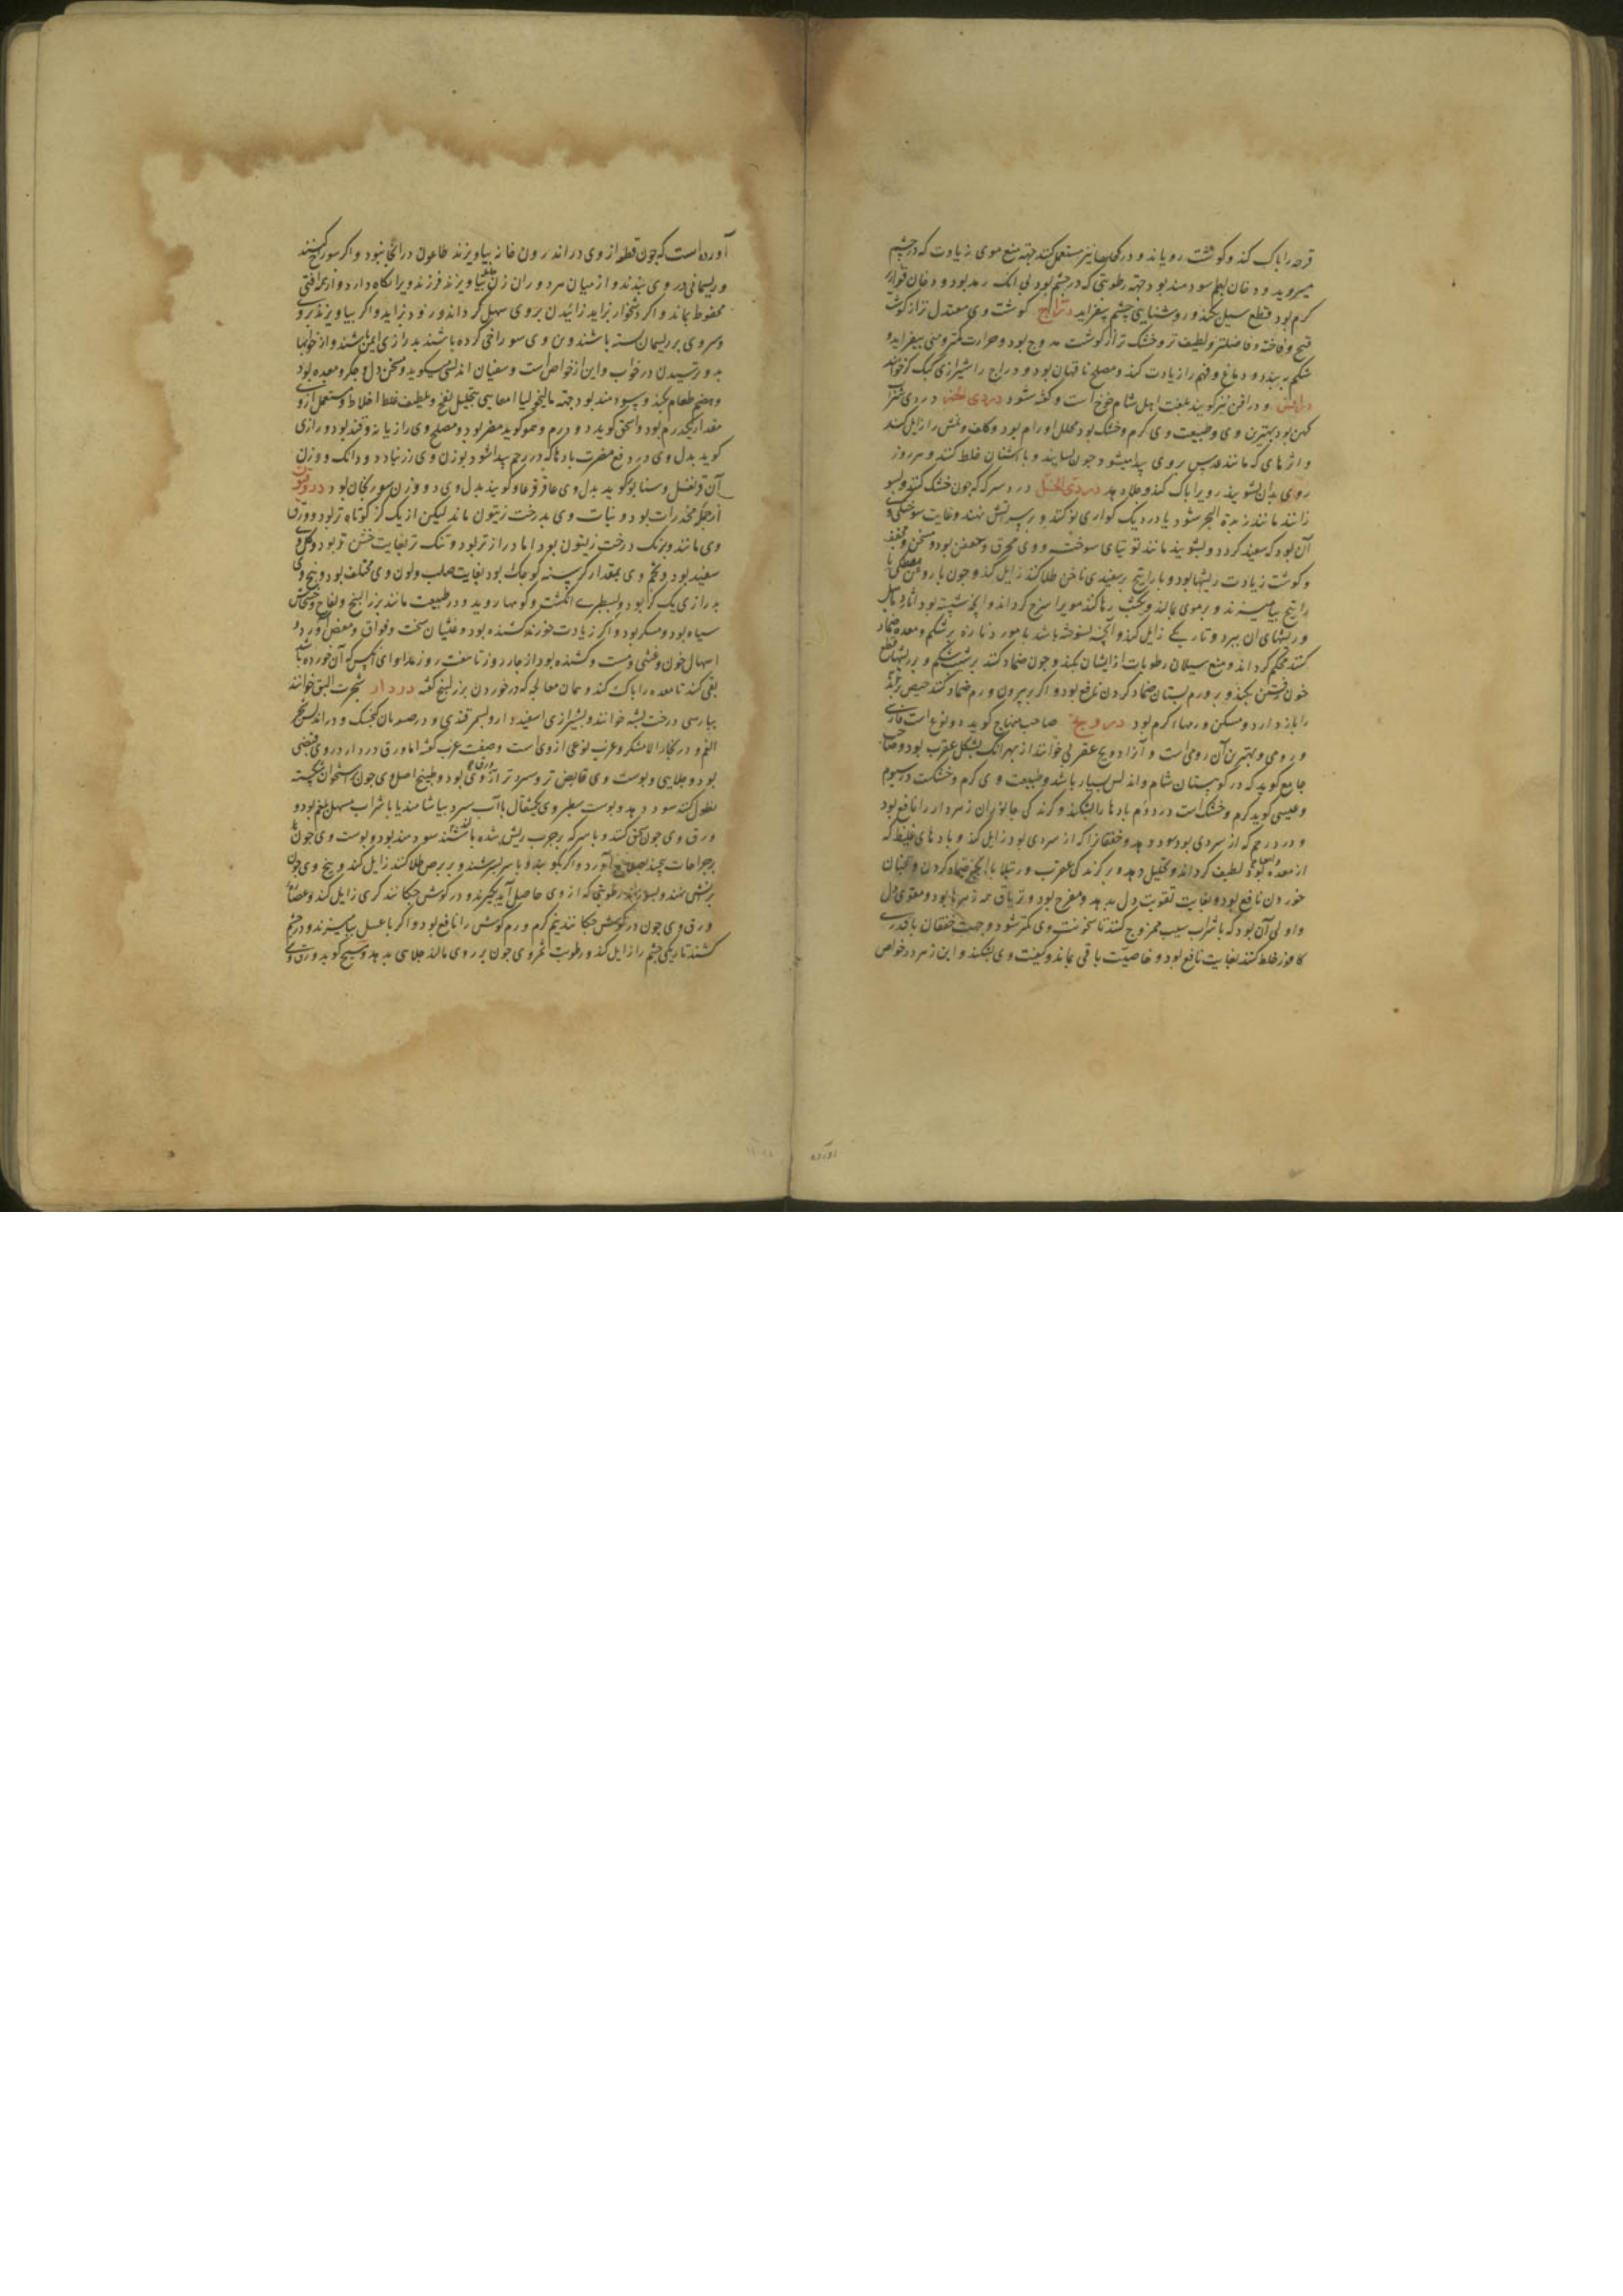 قرحه را پاک کند و گوشت رویاند و در کحلها نیز مستعمل کنند جهة منع موی زیادت که در چشم
میروید و دخان بطم سودمند بود جهة رطوبتی که در چشم بود بی آنک رمد بود و دخان
گرم بود قطع سیل بکند و روشنایی چشم بیفزاید دراج گوشت وی معتدل تر از گوشت
و فاخته و فاضلتر و لطیف تر و خشک تر از گوشت بود و حرارت کمتر و منی بیفزاید و
شکم ببندد و دماغ و فهم را زیادت کند و مصلح ناقهان بود و دراج را شیرازی کبک
و دراقن نیز گویند بلغت اهل شام خوخ است و گفته شود دردی الخمر دردی شراب
کهن بود بهترین وی و طبیعت وی گرم و خشک بود محلل اورام بود و کلف و نمش را زایل کند
و اثرهای که مانند عدس بر روی پیدا میشود چون بسایند و با اشنان خلط کنند و هر روز
روی بدان بشویند رویرا پاک کند و جلا دهد دردی الخل دردی سرکه که چون خشک کنند و بسو
زانند مانند زبدة البحر شود یا در دیک کواری نو کنند و بر سر آتش نهند و غایت سوختگی
آن بود که سفید گردد و بشویند مانند توتیای سوخته و وی محرق و معفن بود و مسخن و مجفف
و گوشت زیادت ریشها بود و با راتینج بر سفیدی ناخن طلا کنند زایل کند و چون با روغن مصطکی یا
راتینج بیامیزند و بر موی بمالند و یکشب رها کنند مویرا سرخ گرداند و آنچه شسته بود
و ریشهای آن ببرد و تاریکی زایل کند و آنچه نسوخته باشد با مورد تازه بر شکم و معده ضماد
کنند محکم گرداند و منع سیلان رطوبات از ایشان بکند و چون ضماد کنند بر شیب شکم و بر ریشها قطع
خون رفتن بکند و بر ورم پستان ضماد کردن نافع بود و اگر بیرون ورم ضماد کنند حیض
را باز دارد و مسکن ورمهاء گرم بود درونج صاحب منهاج گوید دو نوع است فارسی
و رومی و بهترین آن رومی است و آنرا درونج عقربی خوانند از بهر آنک بشکل عقرب بود و صاحب
جامع گوید که در کوهستان شام و اندلس بسیار باشد و طبیعت وی گرم و خشکست در سیوم
و عیسی گوید گرم و خشک است در دوم بادها را بشکند و گزندگی جانوران زهردار را نافع بود
و درد رحم که از سردی بود سود دهد و خفقانرا که از سردی بود زایل کند و بادهای غلیظ که
از معده بود لطیف گرداند و تحلیل دهد و بر گزندگی عقرب و رتیلا با انجیر ضماد کردن و همچنان
خوردن نافع بود و بغایت تقویت دل بدهد و مفرح بود و تریاق همه زهرها بود و مقوی دل
و اولی آن بود که با شراب سیب ممزوج کنند تا سخونت وی کمتر شود و جهت خفقان با قدری
کافور خلط کنند بغایت نافع بود و خاصیت باقی بماند و کیفیت وی بشکند و ابن زهر در خواص
آورده
آورده است که چون قطعه از وی در اندرون خانه بیاویزند طاعون در آنجا نبود و اگر سوراخ کنند
و ریسمانی در وی بندند و از میان هر دو ران زن بیاویزند فرزند ویرا نگاه دارد و از همه آفتی
محفوظ بماند و اگر دشخوار بزاید زائیدن بر وی سهل گرداند و زود بزاید و اگر بیاویزند بر
سروی بر ریسمان بسته باشند و بن وی سوراخی کرده باشند بدرازی ایمن باشند و از خوابها
بد و ترسیدن در خواب و این از خواص است و سفیان اندلسی میگوید مسخن دل و جگر و معده بود
و هضم طعام بکند و سودمند بود جهة مالیخولیا معایی بتحلیل نفخ و تلطیف غلظ اخلاط و مستعمل از وی
مقدار یکدرم بود و اسحق گوید دو درم و همو گوید مضر بود و مصلح وی رازیانه و قند بود و رازی
گوید بدل وی در دفع مضرت بادها که در رحم پیدا شود بوزن وی زرنباد و دو دانک و وزن
آن قرنفل و سابور گوید بدل وی عاقرقرحا و گویند بدل وی دو وزن سورنجان بود دروقنون
از جمله مخدرات بود و نبات وی بدرخت زیتون ماند لیکن از یک گز کوتاه تر بود و ورق
وی مانند و برنگ درخت زیتون بود اما درازتر بود و تنک تر بغایت خشن تر بود و گل وی
سفید بود و تخم وی بمقدار کرسنه کوچک بود بغایت صلب و لون وی مختلف بود و بیخ وی
بدرازی یک گز بود و بسطبری انگشت و کوهها روید و در طبیعت مانند بزر البنج و لفاح و خشخاش
سیاه بود و مسکر بود و اگر زیادت خورند کشنده بود و غثیان سخت و فواق و مغص آورد و
اسهال خون و غشی و هست و کشنده بود از چهار روز تا هفت روز مداوای آنکس که آن خورده باشد
بقی کنند تا معده را پاک کند و همان معالجه که در خوردن بزر البنج گفته دردار شجرت البق خوانند
بپارسی درخت پشه خوانند و بشیرازی اسفیدار و بسمرقندی و در اصفهان گنجشک و در اندلس شجر
و صفت غرب گفته اما ورق دردار در وی قبضی
بود و جلایی و پوست وی قابض تر و سردتر از وی بود و طبیخ اصل وی چون بر استخوان شکسته
نطول کنند سود دهد و پوست سطبر وی یکمثقال با آب سرد بیاشامند یا با شراب مسهل بلغم بود و
ورق وی چون سحق کنند و با سرکه بر جرب ریش شده باشند سودمند بود و پوست وی چون
بر جراحات پیچند بصلاح آورد و اگر بکوبند و با سرکه بسرشند و بر برص طلا کنند زایل کند و بیخ وی چون
بر آتش نهند و بسوزانند رطوبتی که از وی حاصل آید بگیرند و در گوش چکانند کری زایل کند و عصاره
ورق وی چون در گوش چکانند نیم گرم ورم گوش را نافع بود و اگر با عسل بیامیزند و در چشم
کشند تاریکی چشم را زایل کند و رطوبت ثمر وی چون بر روی مالند جلایی بدهد و مسیح گوید ورق وی